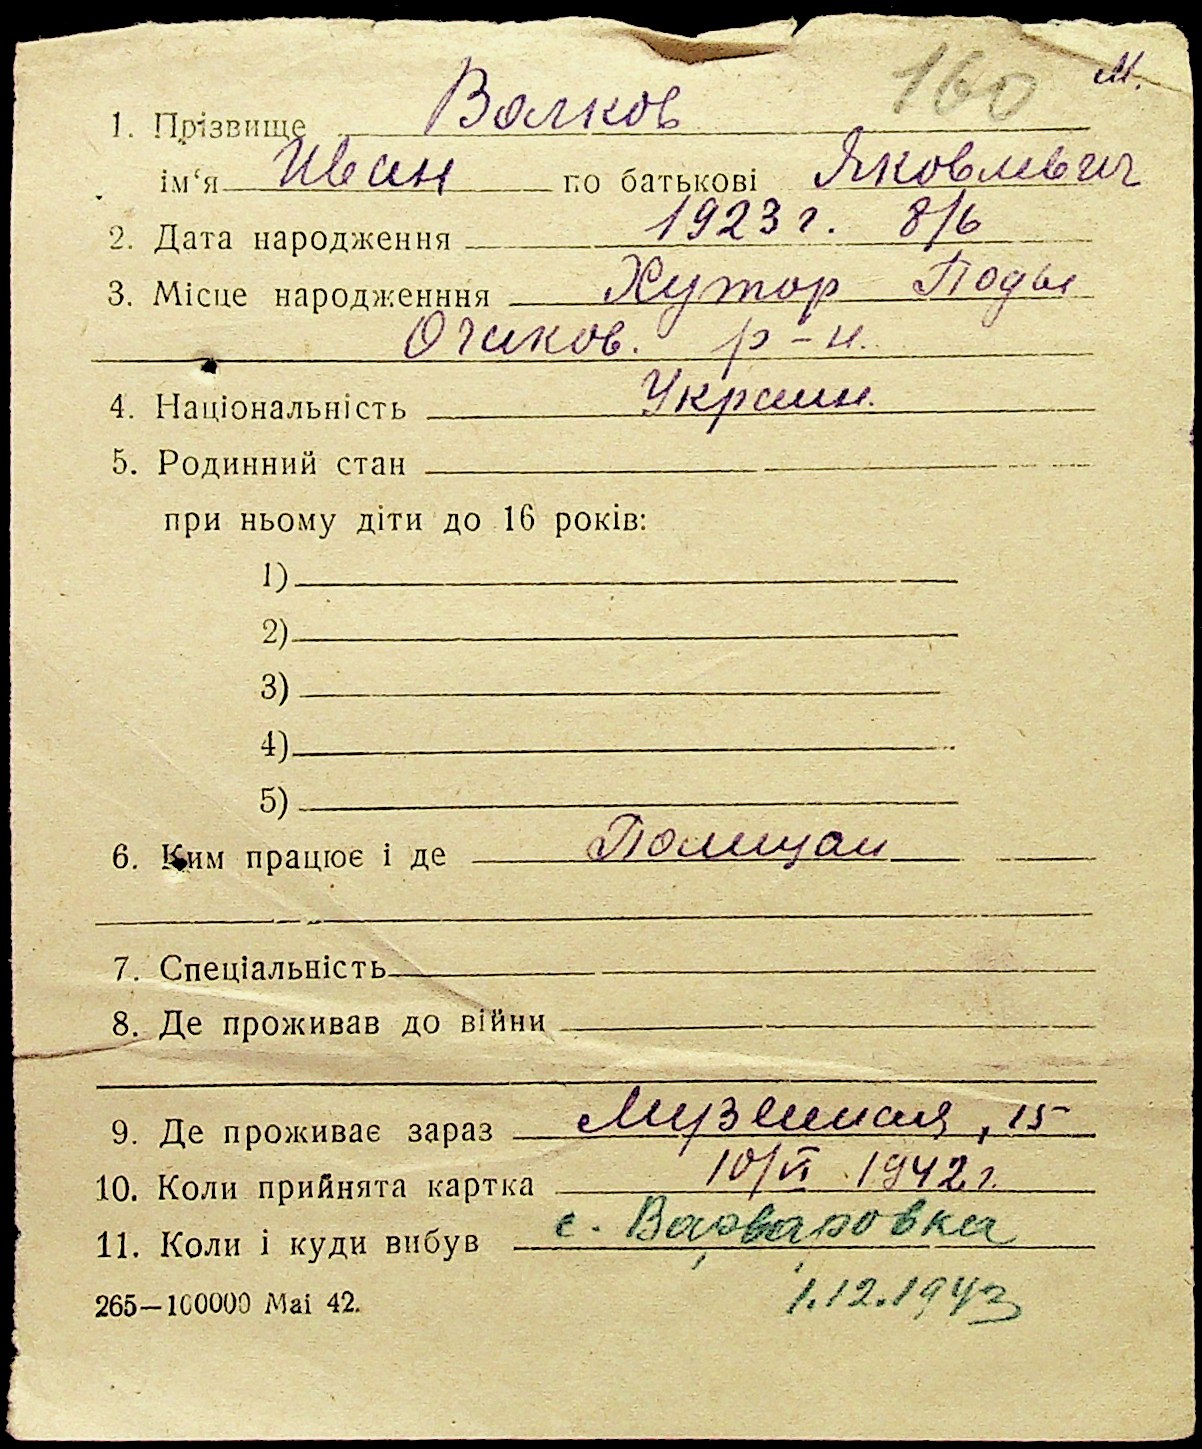 160 М.
1. Прізвище Волков
ім‘я Иван по батькові Яковлевич
2. Дата народження 1923 г. 8/6
3. Місце народженння Хутор Поды
Очаков. р-н.
4. Національність Украин.
5. Родинний стан
при ньому діти до 16 років:
1)
2)
3)
4)
5)
6. Ким працює і де Полицаи
7. Спеціальність
8. Де проживав до війни
9. Де проживає зараз Музейная, 15
10. Коли прийнята картка 10/VI 1942 г.
11. Коли і куди вибув с. Варваровка
265—100000 Маі 42. 1.12.1943